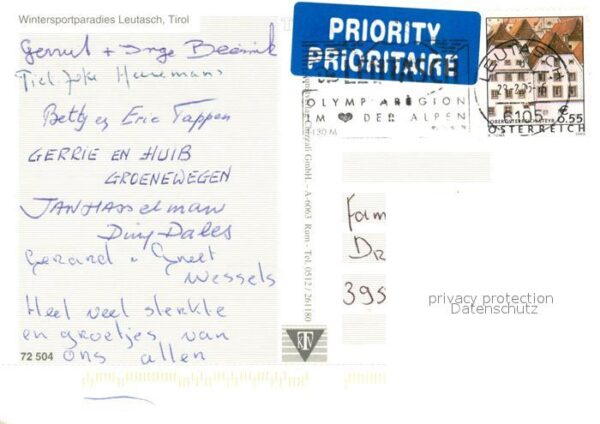 Wintersportparadies Leutasch, Tirol
Gerrit + Inge
Betty en Eric Tappen
GERRIE EN HUIB
GROENEWEGEN
JAN HASSelman
Diny Dales
Gerard + Greet
Wessels
Heel veel sterkte
en groetjes van
ons allen
72 504
PRIORITY
PRIORITAIRE
LEUTASCH
OLYMPIAREGION
IM DER ALPEN
6105
LEUTASCH
0.55
ÖSTERREICH
GmbH. - A-6063 Rum - Tel. 0512 / 261180
KTV
Fam
DR
395
privacy protection
Datenschutz